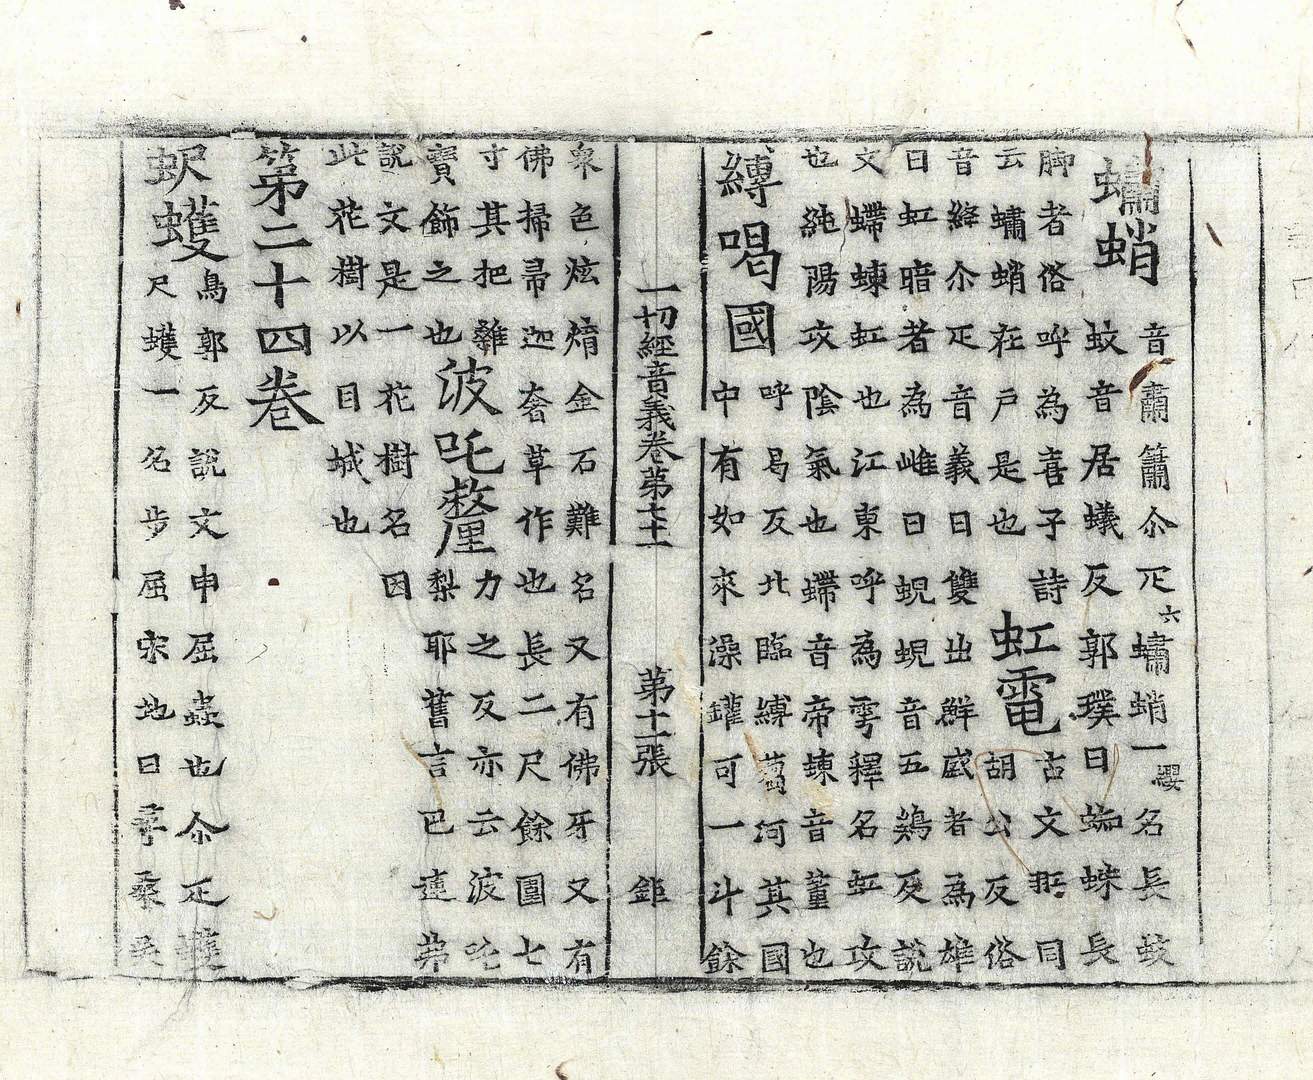 蠨蛸
音蕭簫尒疋蠨蛸一名長蚑
蚑音居蟻反郭璞曰蜘蛛長
脚者俗呼為喜子詩
云蠨蛸在戶是也
虹電
古文同
胡公反俗
音絳尒疋音義曰雙出鮮盛者為雄
曰虹暗者為雌曰蜺蜺音五鷄反說
文螮蝀虹也江東呼為雩釋名虹攻
也純陽攻陰氣也螮音帝蝀音董也
縳喝國
呼曷反北臨縳蒭河其國
中有如來澡罐可一斗餘
一切經音義卷第七十一　第十一張　鉅
衆色炫焴金石難名又有佛牙又有
佛掃帚迦奢草作也長二尺餘圍七
寸其把雜
寶飾之也
波吒釐
力之反亦云波吒
梨耶舊言巴連弗
說文是一花樹名因
此花樹以目城也
第二十四卷
蚇蠖
烏郭反說文申屈蟲也尒疋蠖
尺蠖一名步屈宋地曰尋桑吳